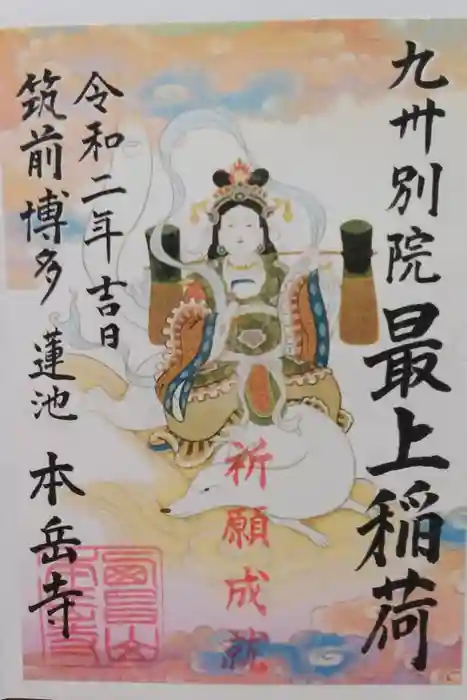 九州別院 最上稲荷
祈願成就
令和二年吉日
筑前博多 蓮池 本岳寺